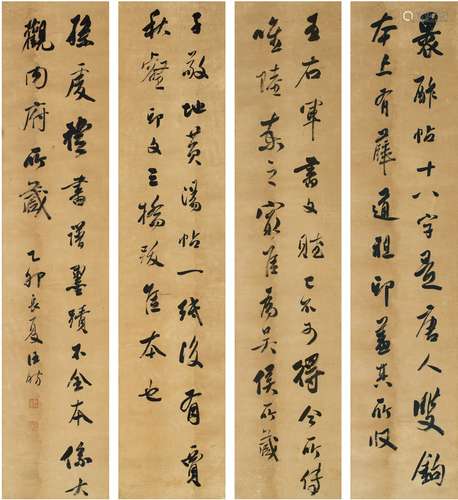 裹鮓帖十八字是唐人雙鉤
本上有薛道祖印蓋其所收
王右軍書文賦已不可得今所傳
唯陸柬之 為吳侯所藏
子敬地黃湯帖一紙後有賈
秋壑印文三橋跋舊本也
孫虔禮書譜墨蹟不全本係大
觀內府所藏 乙卯長夏